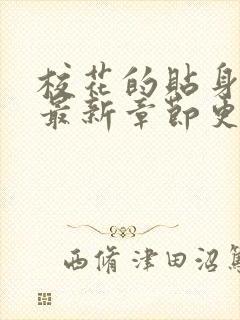 校花的贴身
最新章节更
西脩津田沼篤